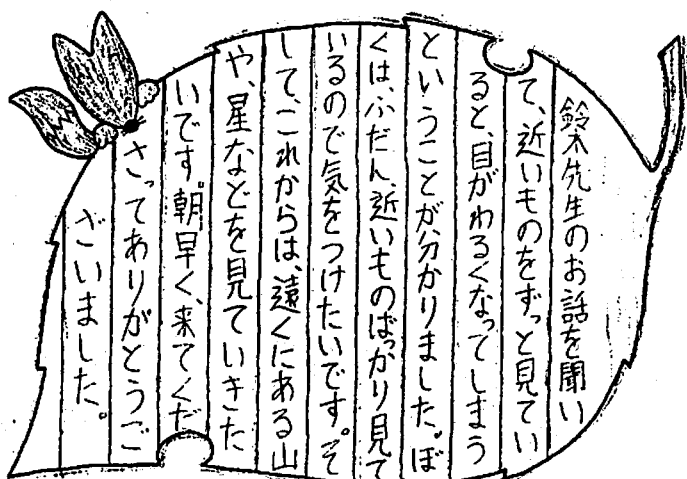 鈴木先生のお話を聞い
て、近いものをずっと見てい
ると、目がわるくなってしまう
ということが分かりました。ぼ
くは、ふだん、近いものばっかり見て
いるので気をつけたいです。そ
して、これからは、遠くにある山
や、星などを見ていきた
いです。朝早く、来てくだ
さってありがとうご
ざいました。